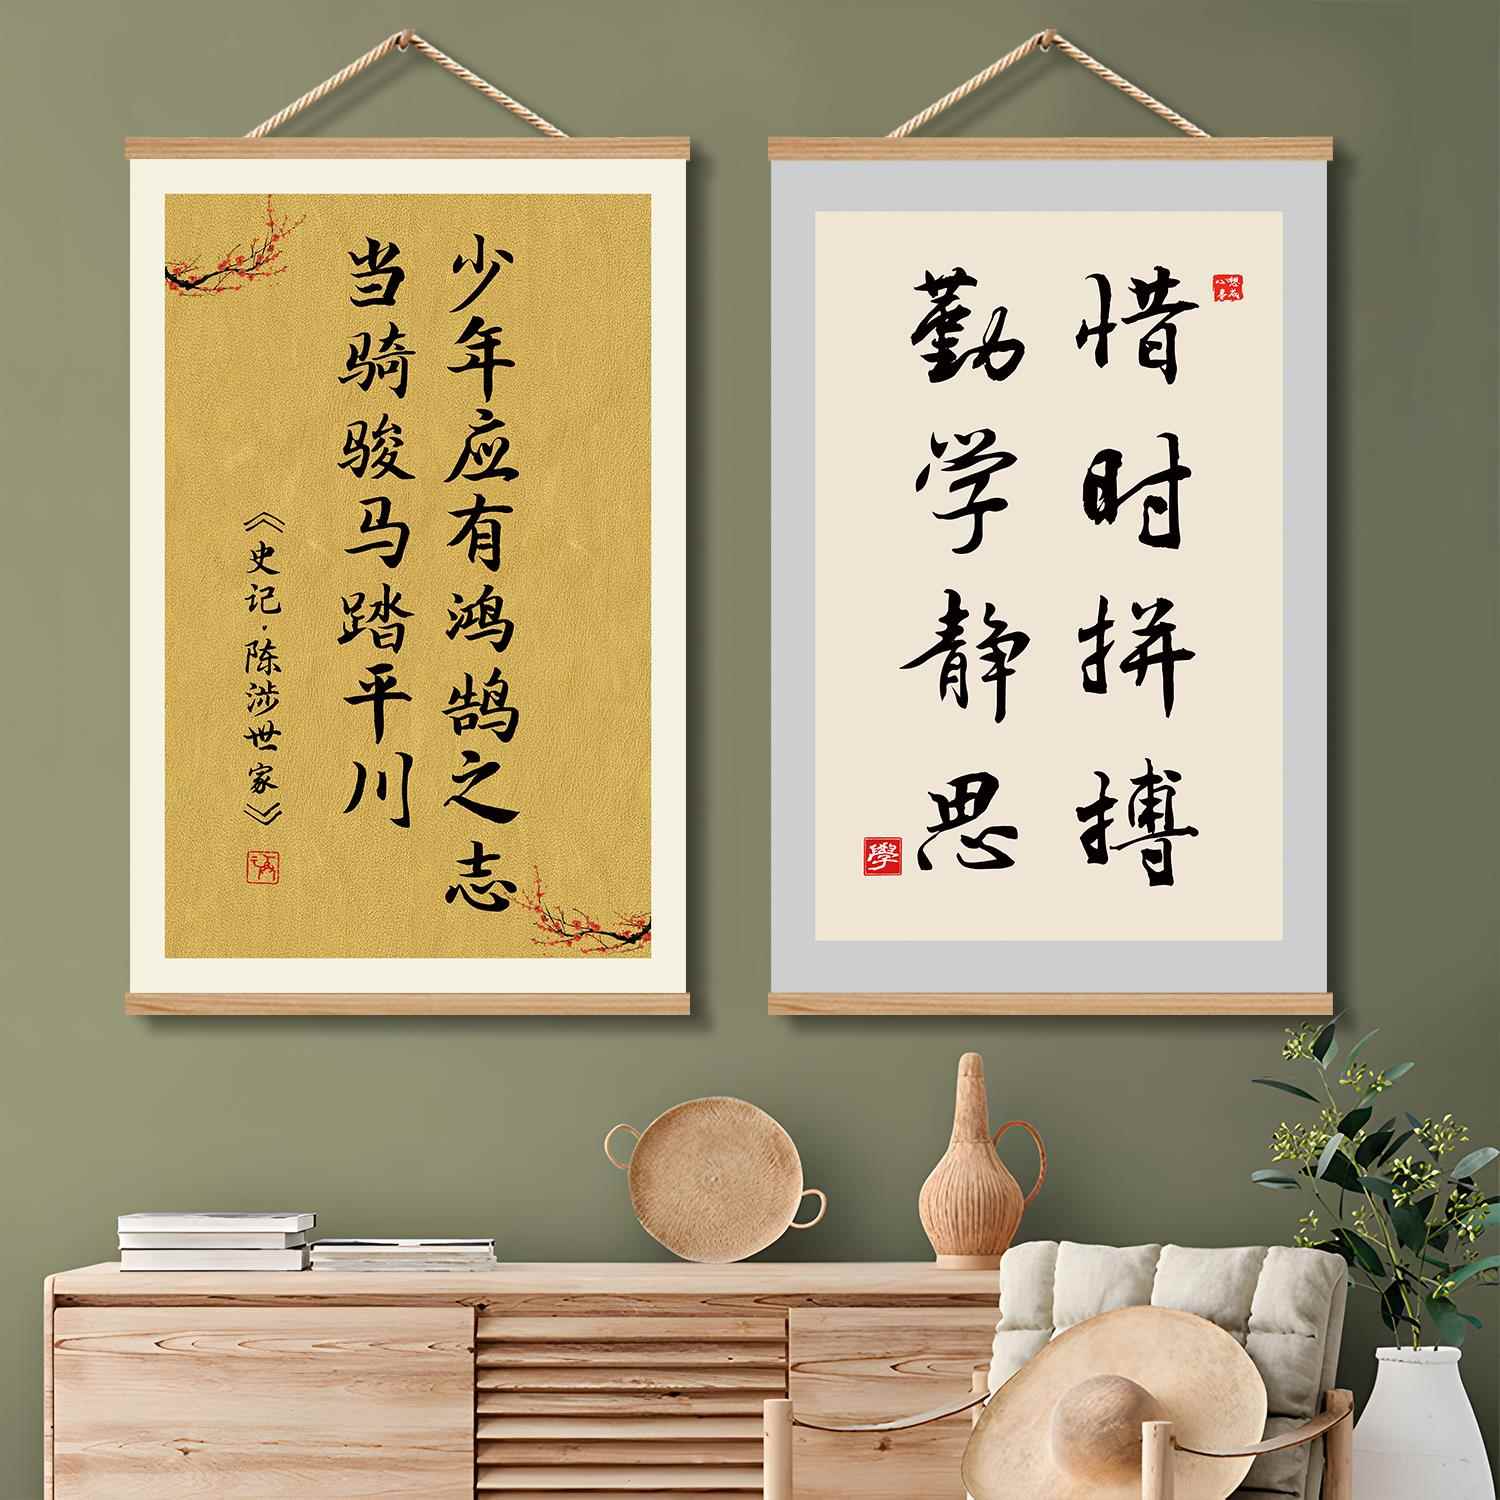 少年应有鸿鹄之志
当骑骏马踏平川
《史记·陈涉世家》
惜时拼搏
勤学静思
學